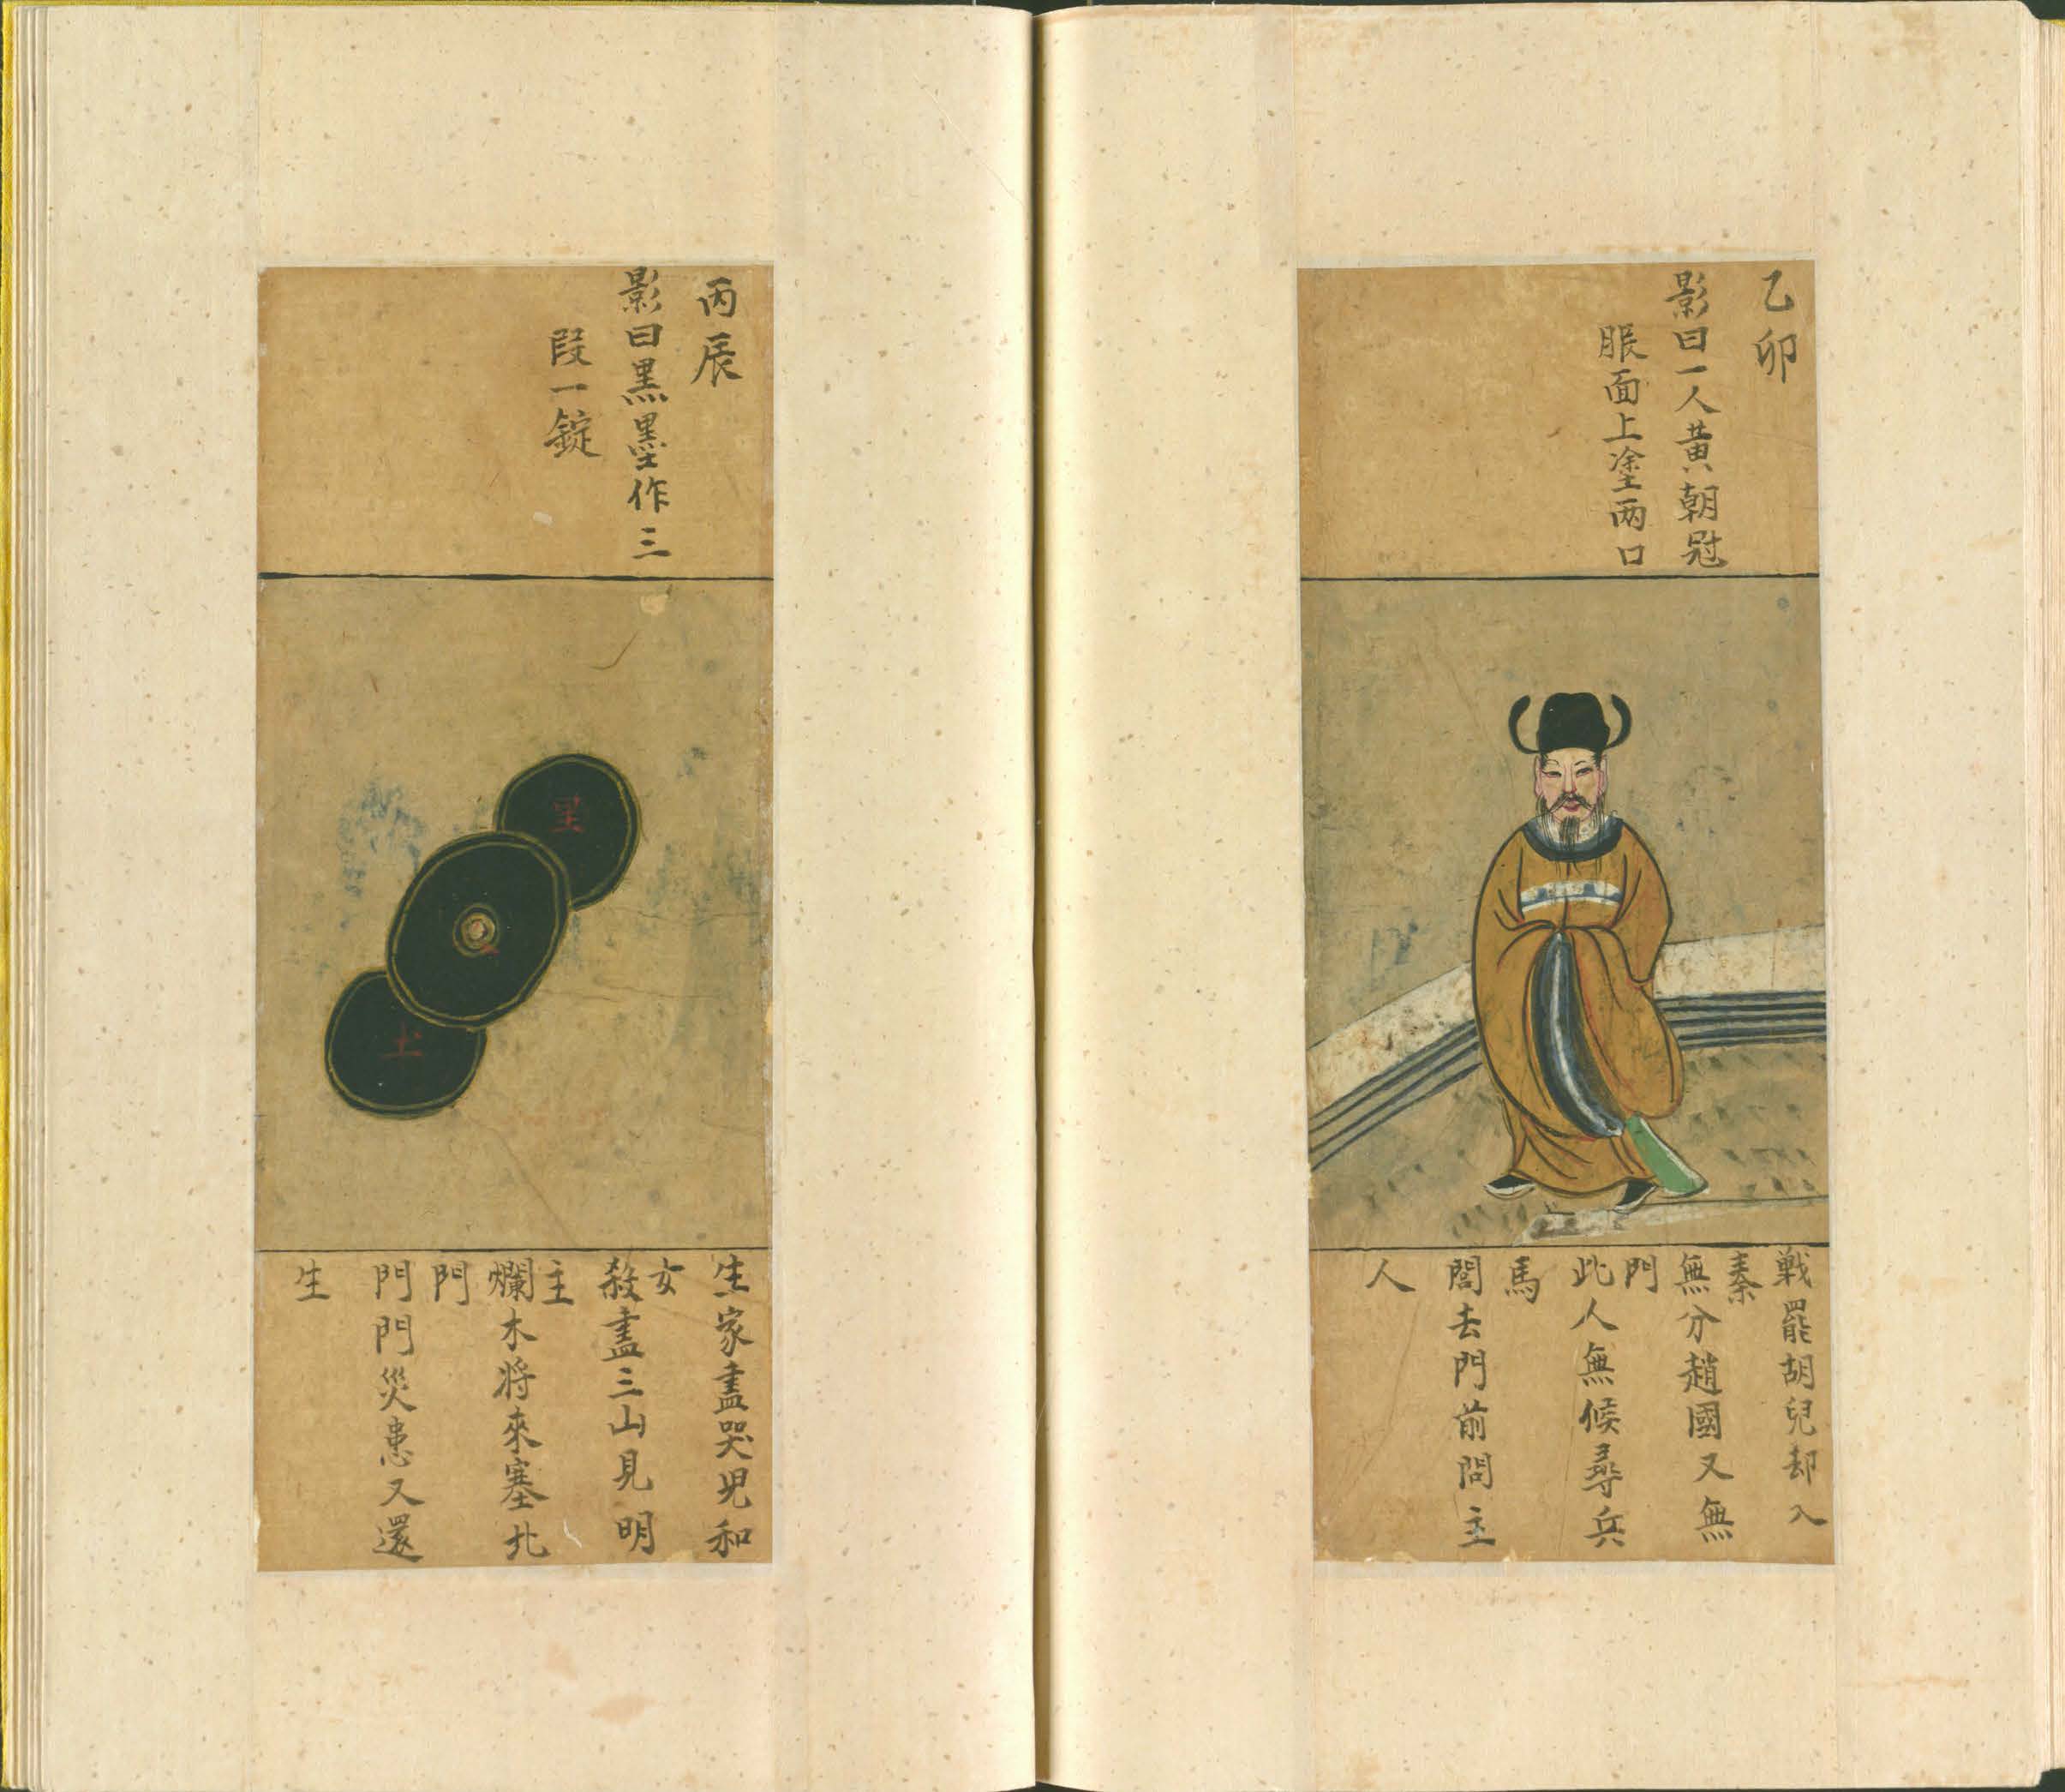 乙卯
影曰一人黄朝冠
服面上塗两口
戰罷胡兒却入
秦
無分趙國又無
門
此人無候尋兵
馬
閭去門前問主
人
丙辰
影曰黑墨作三
段一錠
里
土
生家盡哭兒和
女
殺盡三山見明
主
爛木将來塞北
門
門門災患又還
生